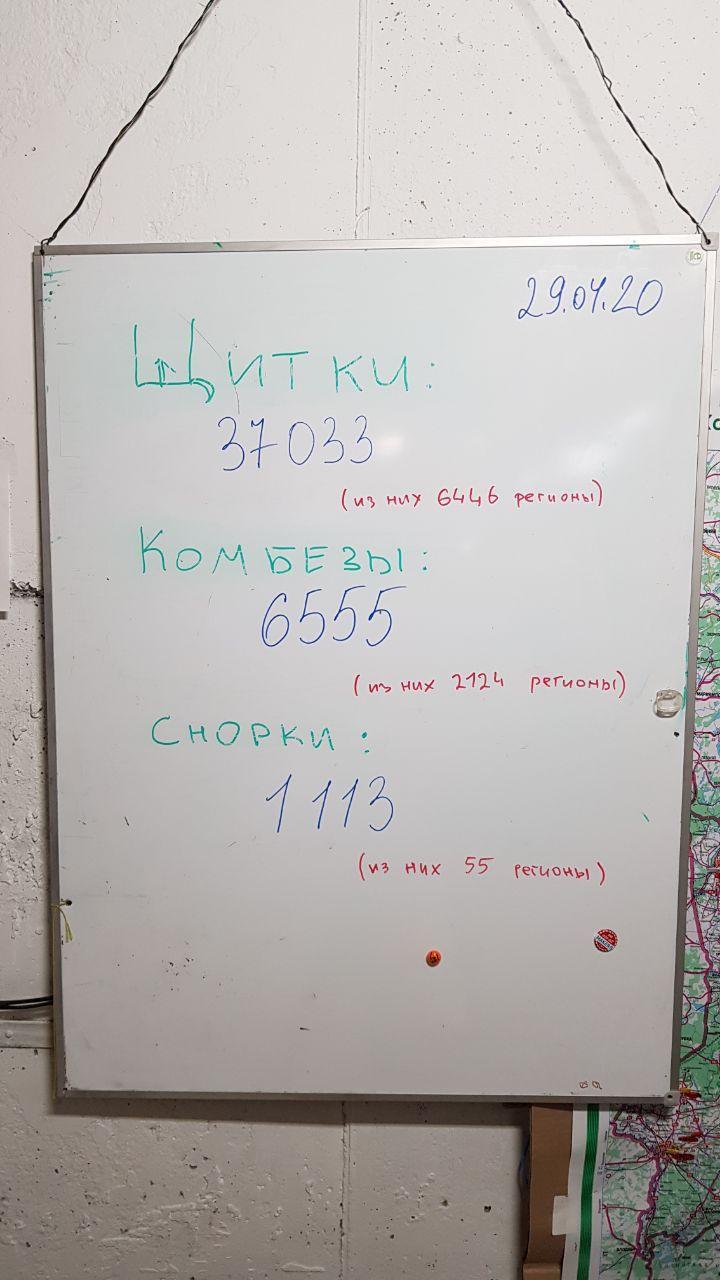 29.04.20
ЩИТКИ:
37033
(из них 6446 регионы)
КОМБЕЗЫ:
6555
(из них 2124 регионы)
СНОРКИ:
1113
(из них 55 регионы)